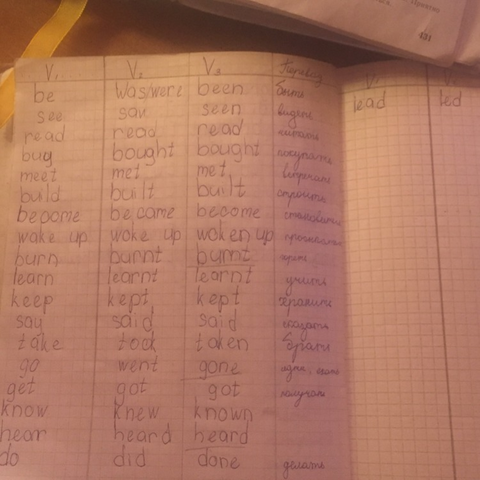 131
V₁ V₂ V₃ Перевод V₁ V₂
be was/were been быть lead led
see saw seen видеть
read read read читать
buy bought bought покупать
meet met met встречать
build built built строить
become became become становиться
wake up woke up woken up просыпаться
burn burnt burnt гореть
learn learnt learnt учить
keep kept kept хранить
say said said сказать
take took taken брать
go went gone идти,
get got got получать
know knew known
hear heard heard
do did done делать